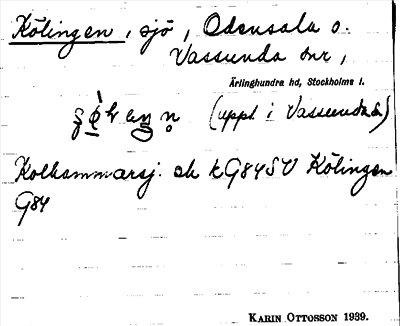 Kölingen, sjö, Odensala o.
Vassunda snr,
Ärlinghundra hd, Stockholms l.
(uppt. i Vassunda sn)
Kolkammarsj. ek kG84SV Kölingen
G84
KARIN OTTOSSON 1939.